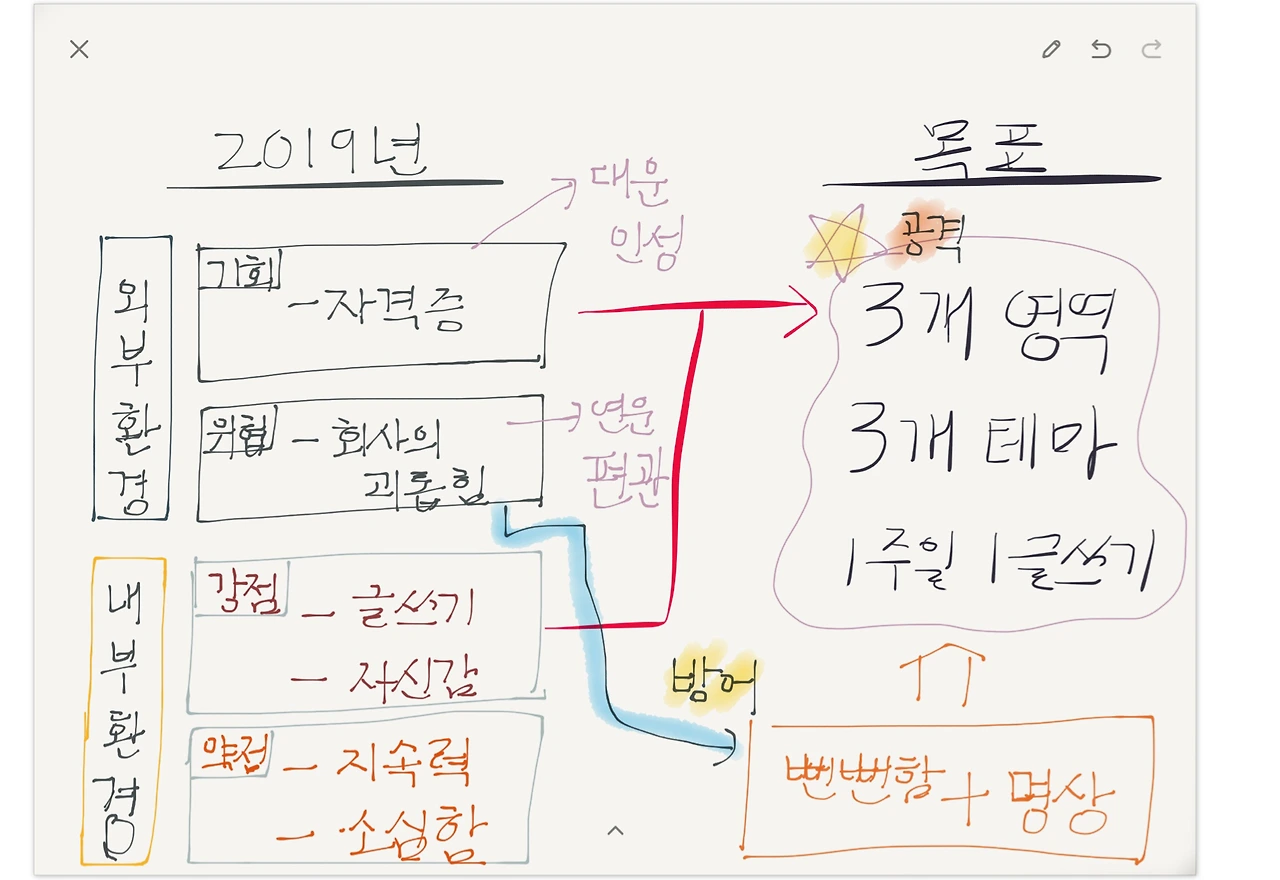 2019년
목표
대운
인성
외부환경
기회
-자격증
위협
-회사의
괴롭힘
연운
편관
공격
3개 영역
3개 테마
1주일 1글쓰기
내부환경
강점
- 글쓰기
- 자신감
약점
- 지속력
- 소심함
방어
뻔뻔함 + 명상